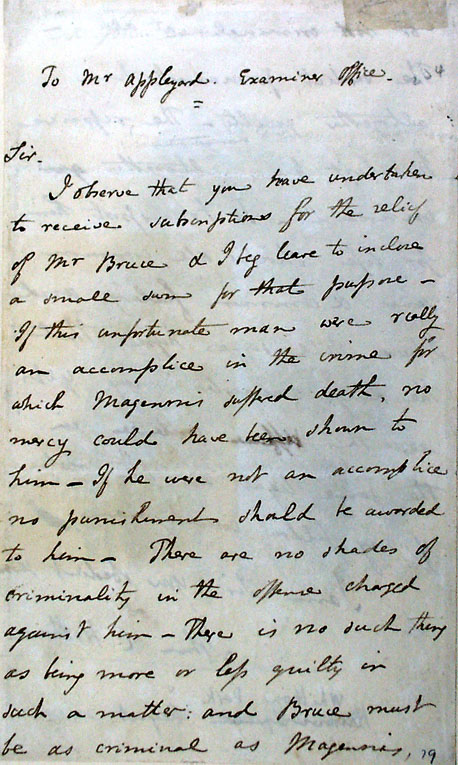 To Mr Appleyard. Examiner Office. 64
Sir.
I observe that you have undertaken
to receive subscriptions for the relief
of Mr Bruce & I beg leave to inclose
a small sum for that purpose –
If this unfortunate man were really
an accomplice in the crime for
which Magennis suffered death, no
mercy could have been shown to
him – If he were not an accomplice
no punishment should be awarded
to him – There are no shades of
criminality in the offense charged
against him – There is no such thing
as being more or less guilty in
such a matter: and Bruce must
be as criminal as Magennis,